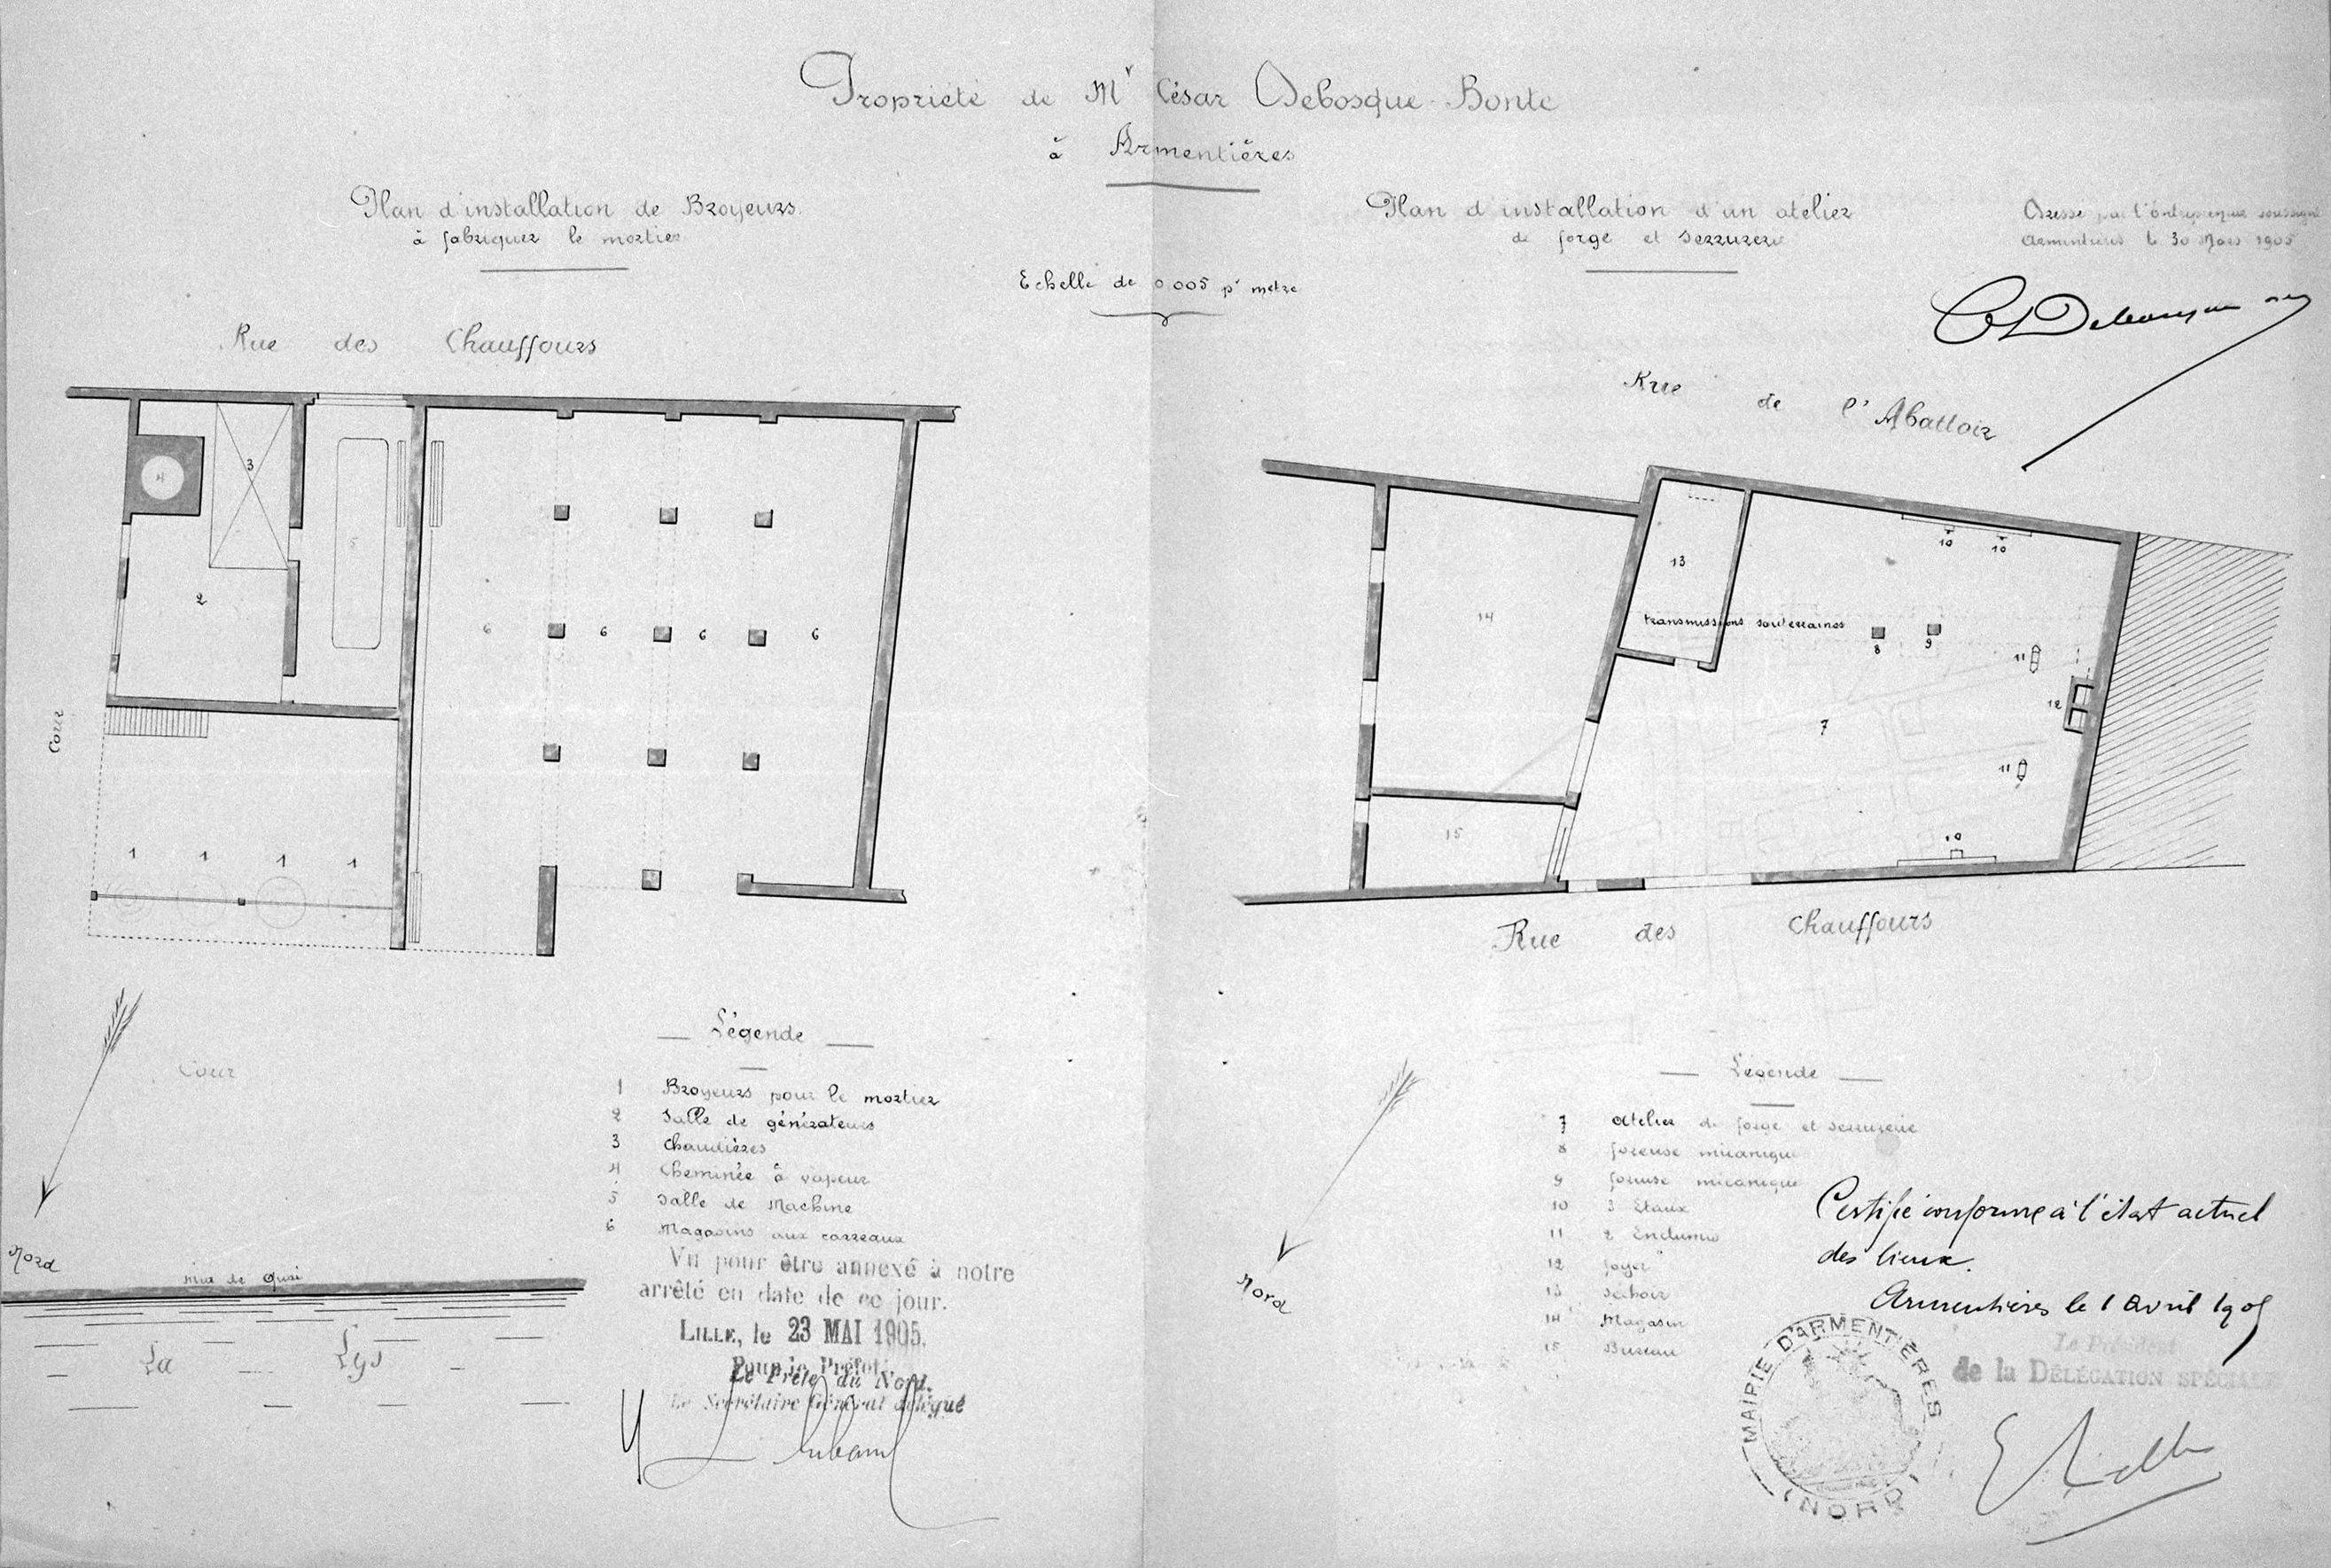 Propriété de Mr César Debosque-Bonte
à Armentières
Plan d'installation de Broyeurs
à fabriquer le mortier
Echelle de 0.005 pr mètre
Plan d'installation d'un atelier
de forge et serrurerie
Dressé par l'Entrepreneur soussigné
Armentières le 30 Mars 1905
Rue des Chauffours
4
3
5
2
6 6 6 6
Cour
1 1 1 1
Cour
Nord
mur de Quai
La Lys
Légende
1 Broyeurs pour le mortier
2 Salle de générateurs
3 Chaudières
4 Cheminée à vapeur
5 Salle de Machine
6 Magasins aux carreaux
Vu pour être annexé à notre
arrêté en date de ce jour.
LILLE, le 23 MAI 1905.
Pour le Préfet
du Nord.
Le Secrétaire Général délégué
Rue de l'Abattoir
13
10 10
14
transmissions souterraines
8 9
11
12
7
11
15
10
Rue des Chauffours
Nord
Légende
7 Atelier de forge et serrurerie
8 foreuse mécanique
9 foreuse mécanique
10 3 Etaux
11 2 Enclumes
12 foyer
13 Séchoir
14 Magasin
15 Bureau
Certifié conforme à l'état actuel
des lieux.
Armentières le 1 Avril 1905
Le Président
de la DÉLÉGATION SPÉCIALE
MAIRIE D'ARMENTIÈRES
(NORD)